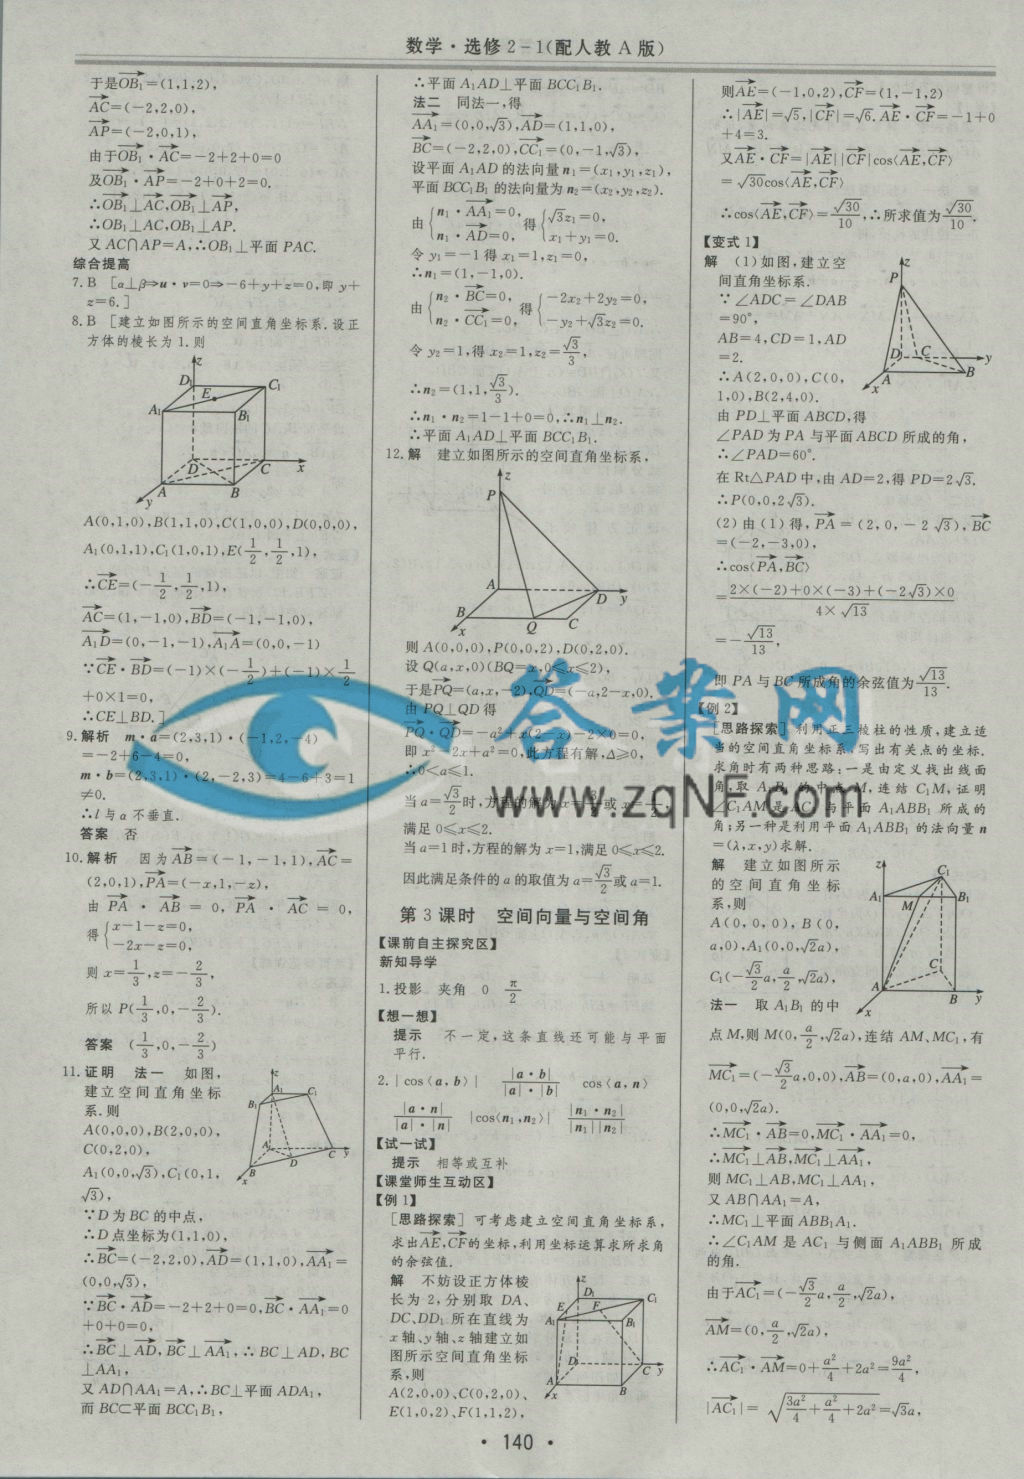 数学·选修2-1(配人教A版)
于是OB₁=(1,1,2),
AC=(-2,2,0),
AP=(-2,0,1),
由于OB₁·AC=-2+2+0=0
及OB₁·AP=-2+0+2=0.
∴OB₁⊥AC,OB₁⊥AP,
∴OB₁⊥AC,OB₁⊥AP.
又AC∩AP=A,∴OB₁⊥平面PAC.
综合提高
7.B [α⊥β⇒u·v=0⇒-6+y+z=0,即y+
z=6.]
8.B [建立如图所示的空间直角坐标系.设正
方体的棱长为1.则
z
D₁ E C₁
A₁ B₁
D C x
A B
y
A(0,1,0),B(1,1,0),C(1,0,0),D(0,0,0),
A₁(0,1,1),C₁(1,0,1),E(1/2,1/2,1),
∴CE=(-1/2,1/2,1),
AC=(1,-1,0),BD=(-1,-1,0),
A₁D=(0,-1,-1),A₁A=(0,0,-1)
∵CE·BD=(-1)×(-1/2)+(-1)×1/2
+0×1=0,
∴CE⊥BD.]
9.解析 m·a=(2,3,1)·(-1,2,-4)
=-2+6-4=0,
m·b=(2,3,1)·(2,-2,3)=4-6+3=1
≠0.
∴l与α不垂直.
答案 否
10.解析 因为AB=(-1,-1,1),AC=
(2,0,1),PA=(-x,1,-z),
由PA·AB=0,PA·AC=0,
得{x-1-z=0,
-2x-z=0,
则x=1/3,z=-2/3,
所以P(1/3,0,-2/3).
答案 (1/3,0,-2/3)
11.证明 法一 如图,
建立空间直角坐标
系.则
A(0,0,0),B(2,0,0),
C(0,2,0),
A₁(0,0,√3),C₁(0,1,
√3),
z
A₁ C₁
B₁
A C y
B D
x
∵D为BC的中点,
∴D点坐标为(1,1,0),
∴BC=(-2,2,0),AD=(1,1,0),AA₁=
(0,0,√3),
∵BC·AD=-2+2+0=0,BC·AA₁=0
+0+0=0,
∴BC⊥AD,BC⊥AA₁,∴BC⊥AD,BC
⊥AA₁,
又AD∩AA₁=A,∴BC⊥平面ADA₁,
而BC⊂平面BCC₁B₁,
∴平面A₁AD⊥平面BCC₁B₁.
法二 同法一,得
AA₁=(0,0,√3),AD=(1,1,0),
BC=(-2,2,0),CC₁=(0,-1,√3),
设平面A₁AD的法向量n₁=(x₁,y₁,z₁),
平面BCC₁B₁的法向量为n₂=(x₂,y₂,z₂).
由{n₁·AA₁=0, 得{√3z₁=0,
n₁·AD=0, x₁+y₁=0.
令y₁=-1得x₁=1,z₁=0,
∴n₁=(1,-1,0).
由{n₂·BC=0, 得{-2x₂+2y₂=0,
n₂·CC₁=0, -y₂+√3z₂=0.
令y₂=1,得x₂=1,z₂=√3/3,
∴n₂=(1,1,√3/3).
∴n₁·n₂=1-1+0=0,∴n₁⊥n₂.
∴平面A₁AD⊥平面BCC₁B₁.
12.解 建立如图所示的空间直角坐标系,
z
P
A D y
B Q C
x
则A(0,0,0),P(0,0,2),D(0,2,0).
设Q(a,x,0)(BQ=x,0≤x≤2),
于是PQ=(a,x,-2),QD=(-a,2-x,0).
由PQ⊥QD得
PQ·QD=-a²+x(2-x)-2×0=0,
即x²-2x+a²=0,此方程有解,Δ≥0,
∴0<a≤1.
当a=√3/2时,方程的解为x=3/2或x=1/2,
满足0≤x≤2.
当a=1时,方程的解为x=1,满足0≤x≤2.
因此满足条件的a的取值为a=√3/2或a=1.
第3课时 空间向量与空间角
【课前自主探究区】
新知导学
1.投影 夹角 0 π/2
【想一想】
提示 不一定,这条直线还可能与平面
平行.
2.|cos⟨a,b⟩| |a·b|/|a|·|b| cos⟨a,n⟩
|a·n|/|a|·|n| |cos⟨n₁,n₂⟩| |n₁·n₂|/|n₁||n₂|
【试一试】
提示 相等或互补
【课堂师生互动区】
【例1】
[思路探索] 可考虑建立空间直角坐标系,
求出AE,CF的坐标,利用坐标运算求所求角
的余弦值.
解 不妨设正方体棱
长为2,分别取DA、
DC、DD₁所在直线为
x轴、y轴、z轴建立如
图所示空间直角坐标
系,则
A(2,0,0)、C(0,2,0)、
E(1,0,2)、F(1,1,2),
z
D₁ C₁
E F
A₁ B₁
D C y
A B
x
则AE=(-1,0,2),CF=(1,-1,2)
∴|AE|=√5,|CF|=√6.AE·CF=-1+0
+4=3.
又AE·CF=|AE||CF|cos⟨AE,CF⟩
=√30cos⟨AE,CF⟩
∴cos⟨AE,CF⟩=√30/10,∴所求值为√30/10.
【变式1】
解 (1)如图,建立空
间直角坐标系.
∵∠ADC=∠DAB
=90°,
AB=4,CD=1,AD
=2.
∴A(2,0,0),C(0,
1,0),B(2,4,0).
z
P
D C y
A B
x
由PD⊥平面ABCD,得
∠PAD为PA与平面ABCD所成的角,
∴∠PAD=60°.
在Rt△PAD中,由AD=2,得PD=2√3.
∴P(0,0,2√3).
(2)由(1)得,PA=(2,0,-2√3),BC
=(-2,-3,0),
∴cos⟨PA,BC⟩
=2×(-2)+0×(-3)+(-2√3)×0/4×√13
=-√13/13,
即PA与BC所成角的余弦值为√13/13.
【例2】
[思路探索] 利用正三棱柱的性质,建立适
当的空间直角坐标系,写出有关点的坐标.
求角时有两种思路:一是由定义找出线面
角,取A₁B₁的中点M,连结C₁M,证明
∠C₁AM是AC₁与平面A₁ABB₁所成的
角;另一种是利用平面A₁ABB₁的法向量n
=(λ,x,y)求解.
解 建立如图所示
的空间直角坐标
系,则
A(0,0,0),B(0,
a,0),A₁(0,0,√2a),
C₁(-√3/2a,a/2,√2a),
z
C₁
A₁ M B₁
C
A B y
x
法一 取A₁B₁的中
点M,则M(0,a/2,√2a),连结AM、MC₁,有
MC₁=(-√3/2a,0,0),AB=(0,a,0),AA₁=
(0,0,√2a).
∴MC₁·AB=0,MC₁·AA₁=0,
∴MC₁⊥AB,MC₁⊥AA₁,
则MC₁⊥AB,MC₁⊥AA₁,
又AB∩AA₁=A,
∴MC₁⊥平面ABB₁A₁.
∴∠C₁AM是AC₁与侧面A₁ABB₁所成
的角.
由于AC₁=(-√3/2a,a/2,√2a),
AM=(0,a/2,√2a),
∴AC₁·AM=0+a²/4+2a²=9a²/4,
|AC₁|=√(3a²/4+a²/4+2a²)=√3a,
答案网
www.zqNF.com
·140·